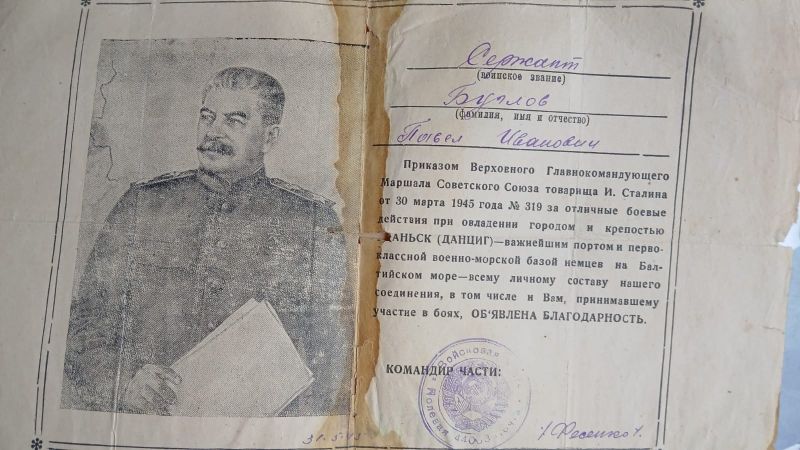 Сержант
(воинское звание)
Буглов
(фамилия, имя и отчество)
Павел Иванович
Приказом Верховного Главнокомандующего
Маршала Советского Союза товарища И. Сталина
от 30 марта 1945 года № 319 за отличные боевые
действия при овладении городом и крепостью
ДАНЬСК (ДАНЦИГ)—важнейшим портом и перво-
классной военно-морской базой немцев на Бал-
тийском море—всему личному составу нашего
соединения, в том числе и Вам, принимавшему
участие в боях, ОБ‘ЯВЛЕНА БЛАГОДАРНОСТЬ.
КОМАНДИР ЧАСТИ:
Войсковая
Полевая
44063
/Фесенко/